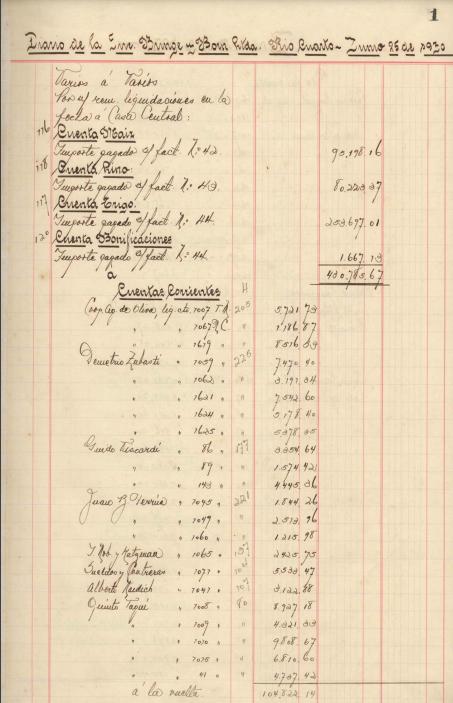 1
Diario de la Suc. Bunge y Born Ltda. Río Cuarto - Junio 25 de 1930
Varios á Varios
Por n/ rem. liquidaciones en la
fecha á Casa Central:
116 Cuenta Maiz
Importe pagado s/ fact. N:º 42.
118 Cuenta Lino
Importe pagado s/ fact. N:º 43. 80.223 37
117 Cuenta Trigo
Importe pagado s/ fact. N:º 44. 253.697 01
120 Cuenta Bonificaciones
Importe pagado s/ fact. N:º 44. 1.667 13
á
Cuentas Corrientes
Coop. Ag. de Oliva, liq. cte. 1007 205 5.721 73
" 1067 1.186 87
" 1619 8.516 39
Demetrio " 1059 " 225 7.470 40
" 1062 " 3.191 34
" 1621 " 7.542 60
" 1624 " 5.178 40
" 1625 " 5.378 35
Guido " 86 " 177 3.354 64
" 89 " 1.574 42
" 143 " 4.445 36
Juan " 1045 " 221 1.844 26
" 1049 " 2.513 96
" 1060 " 1.215 98
" 1065 " 2.425 75
y Contreras " 1071 " 5.533 47
Alberto " 1041 " 107 3.122 88
Quinto " 1008 " 80 8.927 18
" 1009 " 4.321 33
" 1010 " 9.808 67
" 1035 " 6.810 60
" 41 " 4.737 42
á la vuelta 104.822 14